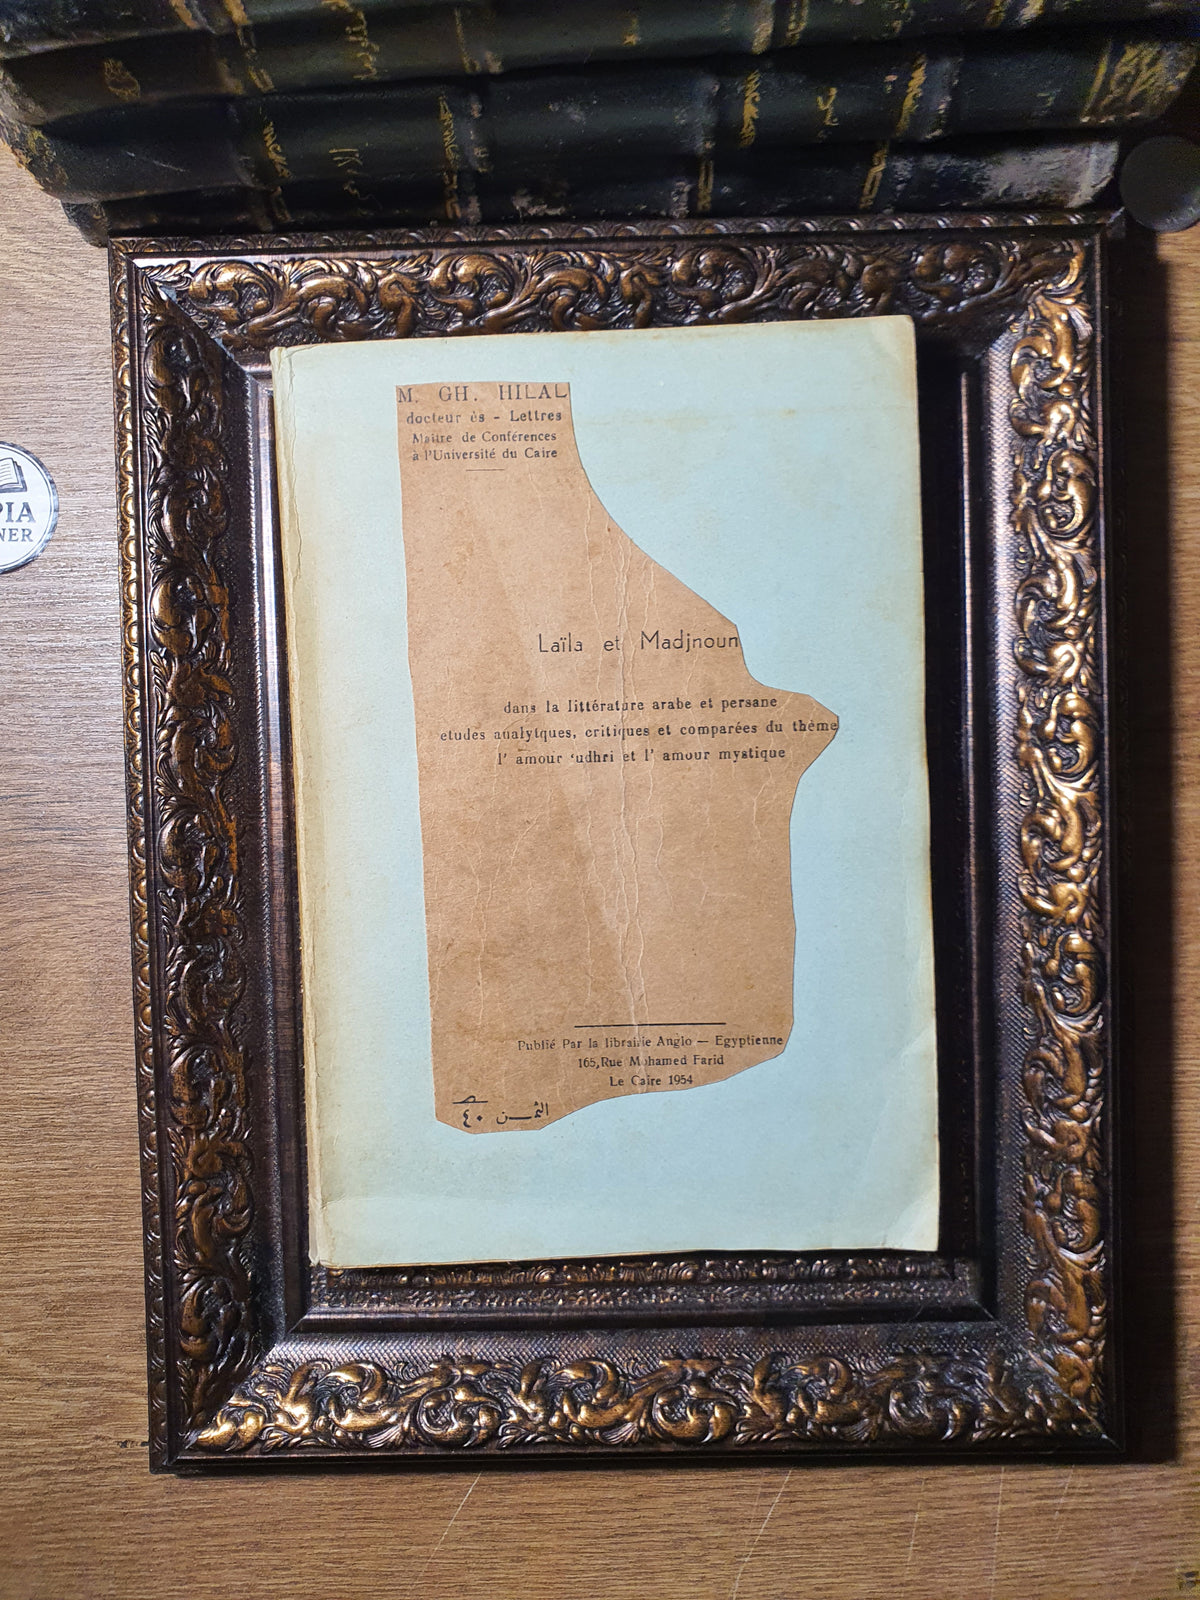 M. GH. HILAL
docteur ès - Lettres
Maitre de Conférences
à l'Université du Caire
Laïla et Madjnoun
dans la littérature arabe et persane
etudes analytques, critiques et comparées du thème
l' amour 'udhri et l' amour mystique
Publié Par la librairie Anglo — Egyptienne
165,Rue Mohamed Farid
Le Caire 1954
الثمـــن ٤٠
PIA
NER